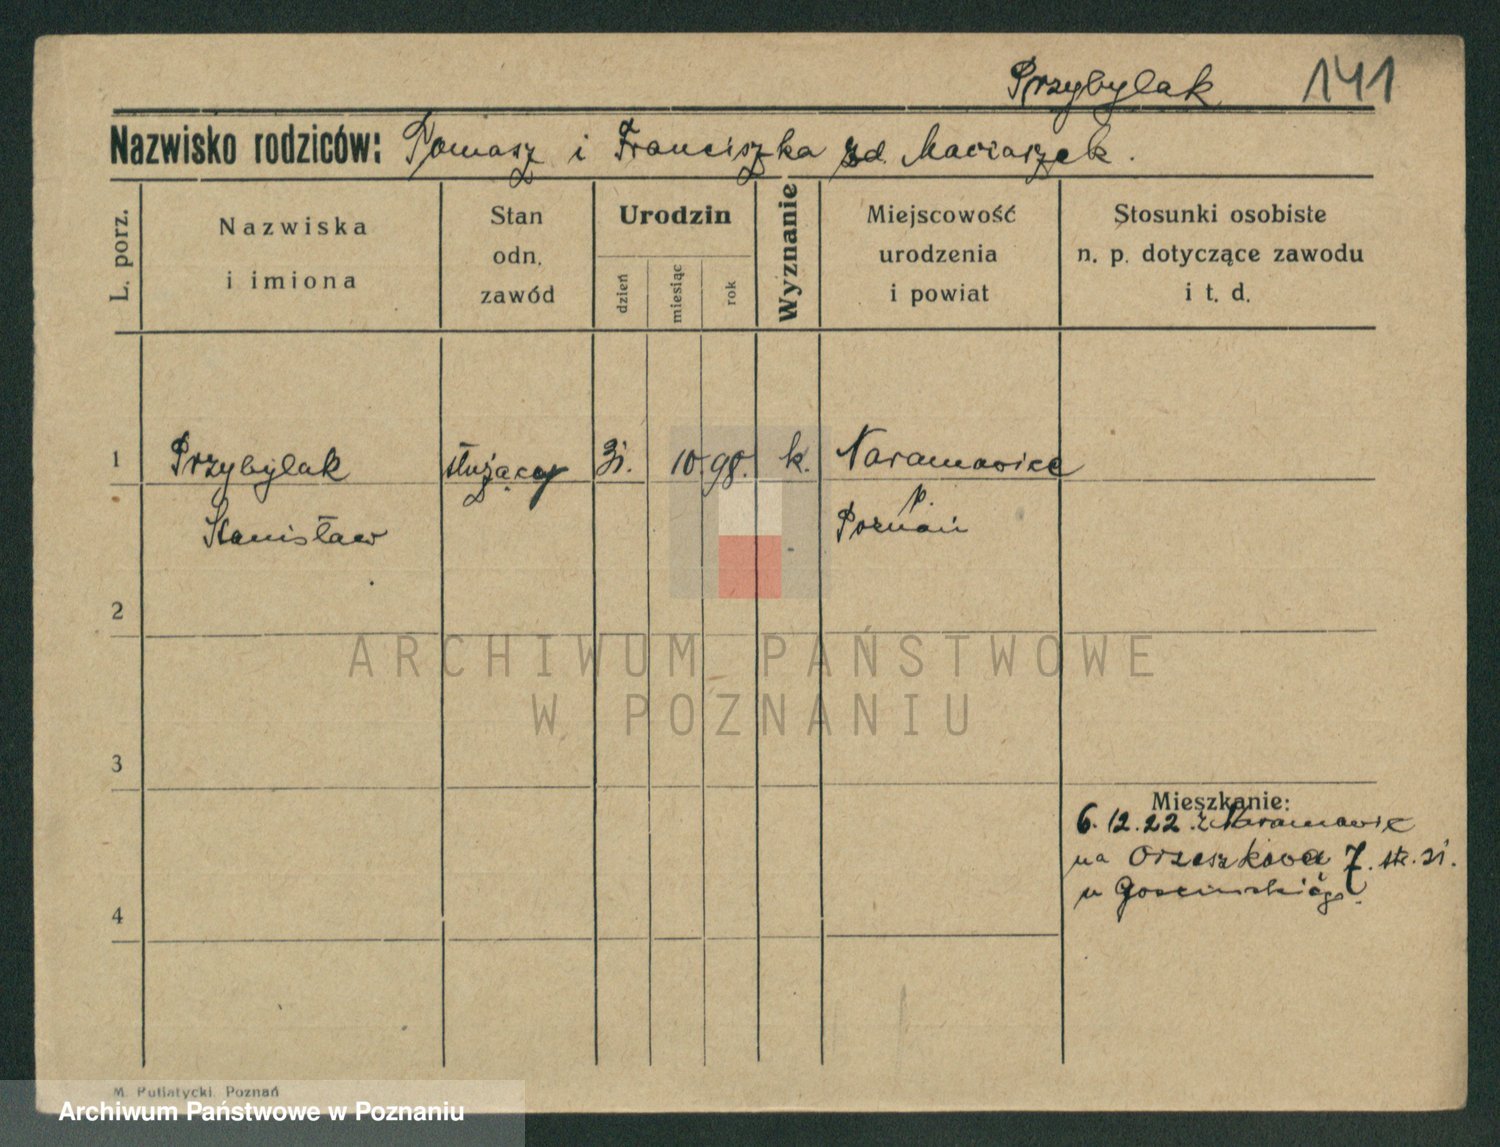 Przybylak 141
Nazwisko rodziców: Tomasz i Franciszka zd. Maciaszek.
L. porz.
Nazwiska
i imiona
Stan
odn.
zawód
Urodzin
dzień
miesiąc
rok
Wyznanie
Miejscowość
urodzenia
i powiat
Stosunki osobiste
n. p. dotyczące zawodu
i t. d.
1 Przybylak służący 31. 10. 98. k. Naramowice
Stanisław p.
Poznań
2
ARCHIWUM PAŃSTWOWE
W POZNANIU
3
Mieszkanie:
6. 12. 22. z Naramowic
na Orzeszkowa 7.
u Gościńskiego.
4
M. Putiatycki, Poznań
Archiwum Państwowe w Poznaniu